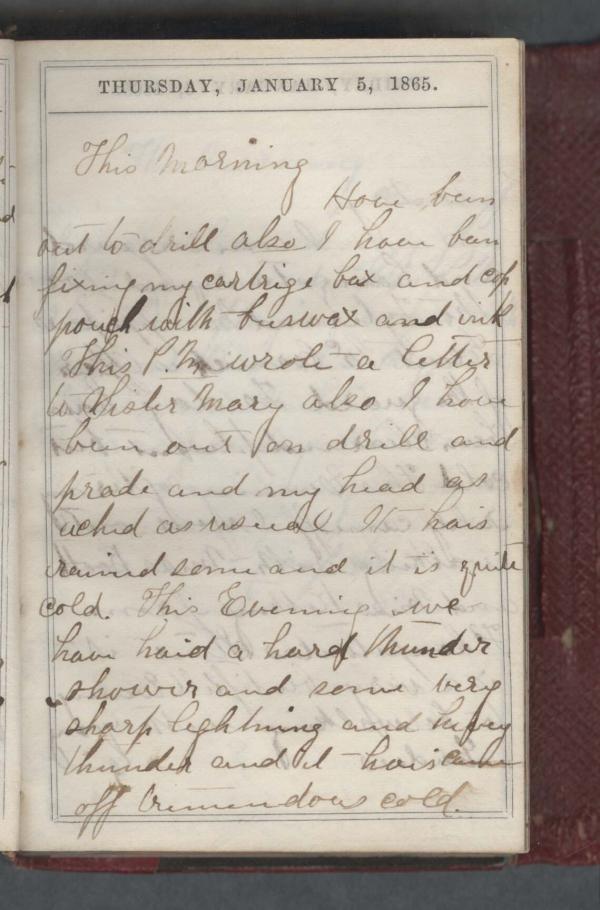 THURSDAY, JANUARY 5, 1865.
This Morning
Have ben
out to drill also I have ben
fixing my cartrige box and cap
pouch with beswax and ink
This P.M. wrote a letter
to Sister Mary also I have
been out on drill and
prade and my head as
ached as useual It hais
rained some and it is quite
cold. This Evening we
have haid a hard thunder
shower and some very
sharp lightning and hevey
thunder and it hais came
off tremendous cold.